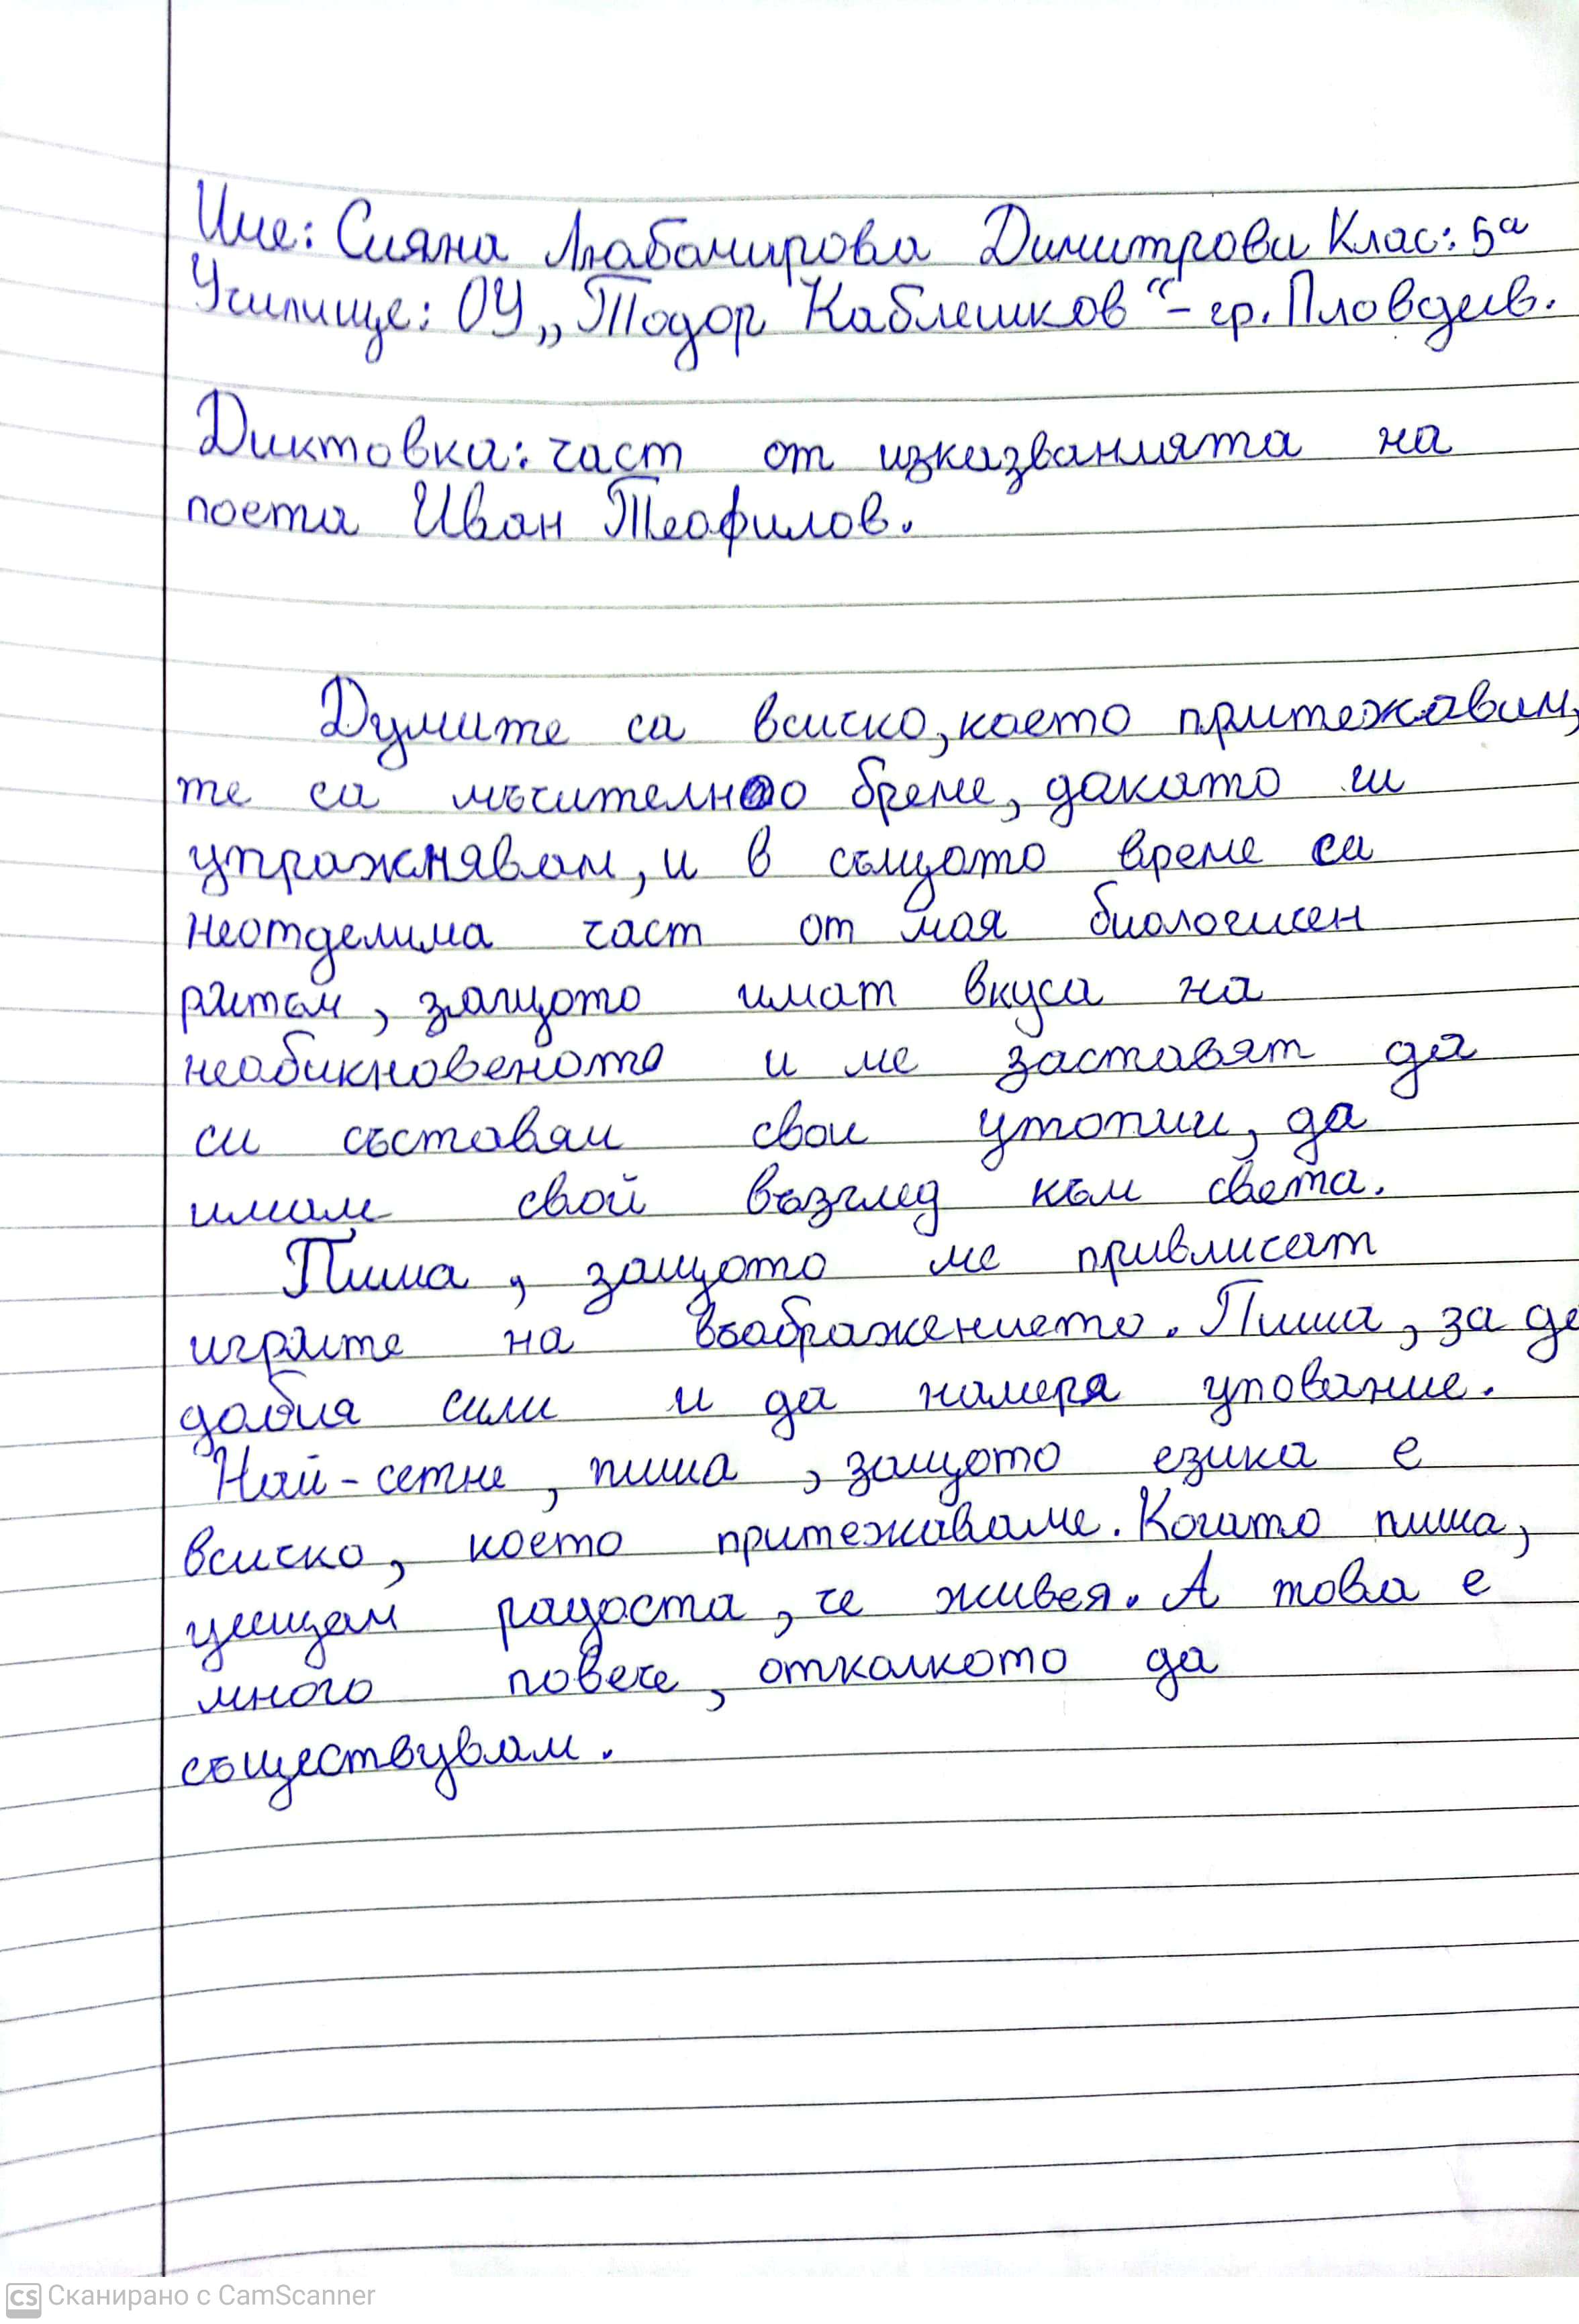 Име: Сияна Любомирова Димитрова Клас: 5а
Училище: ОУ „Тодор Каблешков“ - гр. Пловдив.
Диктовка: част от изказванията на
поета Иван Теофилов.
Думите са всичко, което притежавам,
те са мъчително бреме, докато ги
упражнявам, и в същото време са
неотделима част от моя биологичен
ритъм, защото имат вкуса на
необикновеното и ме заставят да
си съставям свои утопии, да
имам свой възглед към света.
Пиша, защото ме привличат
игрите на въображението. Пиша, за да
добия сили и да намеря упование.
Най-сетне, пиша, защото езика е
всичко, което притежаваме. Когато пиша,
усещам радоста, че живея. А това е
много повече, отколкото да
съществувам.
CS Сканирано с CamScanner